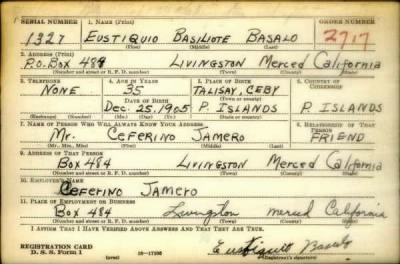 SERIAL NUMBER 1. NAME (Print) ORDER NUMBER
1327 EUSTIQUIO BASILIOTE BASALO 2717
(First) (Middle) (Last)
2. ADDRESS (Print)
P.O. BOX 484 LIVINGSTON MERCED CALIFORNIA
(Number and street or R. F. D. number) (Town) (County) (State)
3. TELEPHONE 4. AGE IN YEARS 5. PLACE OF BIRTH 6. COUNTRY OF CITIZENSHIP
NONE 35 TALISAY, CEBY
DATE OF BIRTH (Town or county)
Dec. 25, 1905 P. ISLANDS P. ISLANDS
(Exchange) (Number) (Mo.) (Day) (Yr.) (State or country)
7. NAME OF PERSON WHO WILL ALWAYS KNOW YOUR ADDRESS 8. RELATIONSHIP OF THAT PERSON
Mr. CEFERINO JAMERO FRIEND
(Mr., Mrs., Miss) (First) (Middle) (Last)
9. ADDRESS OF THAT PERSON
BOX 484 LIVINGSTON MERCED CALIFORNIA
(Number and street or R. F. D. number) (Town) (County) (State)
10. EMPLOYER'S NAME
CEFERINO JAMERO
11. PLACE OF EMPLOYMENT OR BUSINESS
BOX 484 Livingston merced California
(Number and street or R. F. D. number) (Town) (County) (State)
I AFFIRM THAT I HAVE VERIFIED ABOVE ANSWERS AND THAT THEY ARE TRUE.
REGISTRATION CARD
D. S. S. Form 1 (over) 16-17105 Basalo
(Registrant's signature)